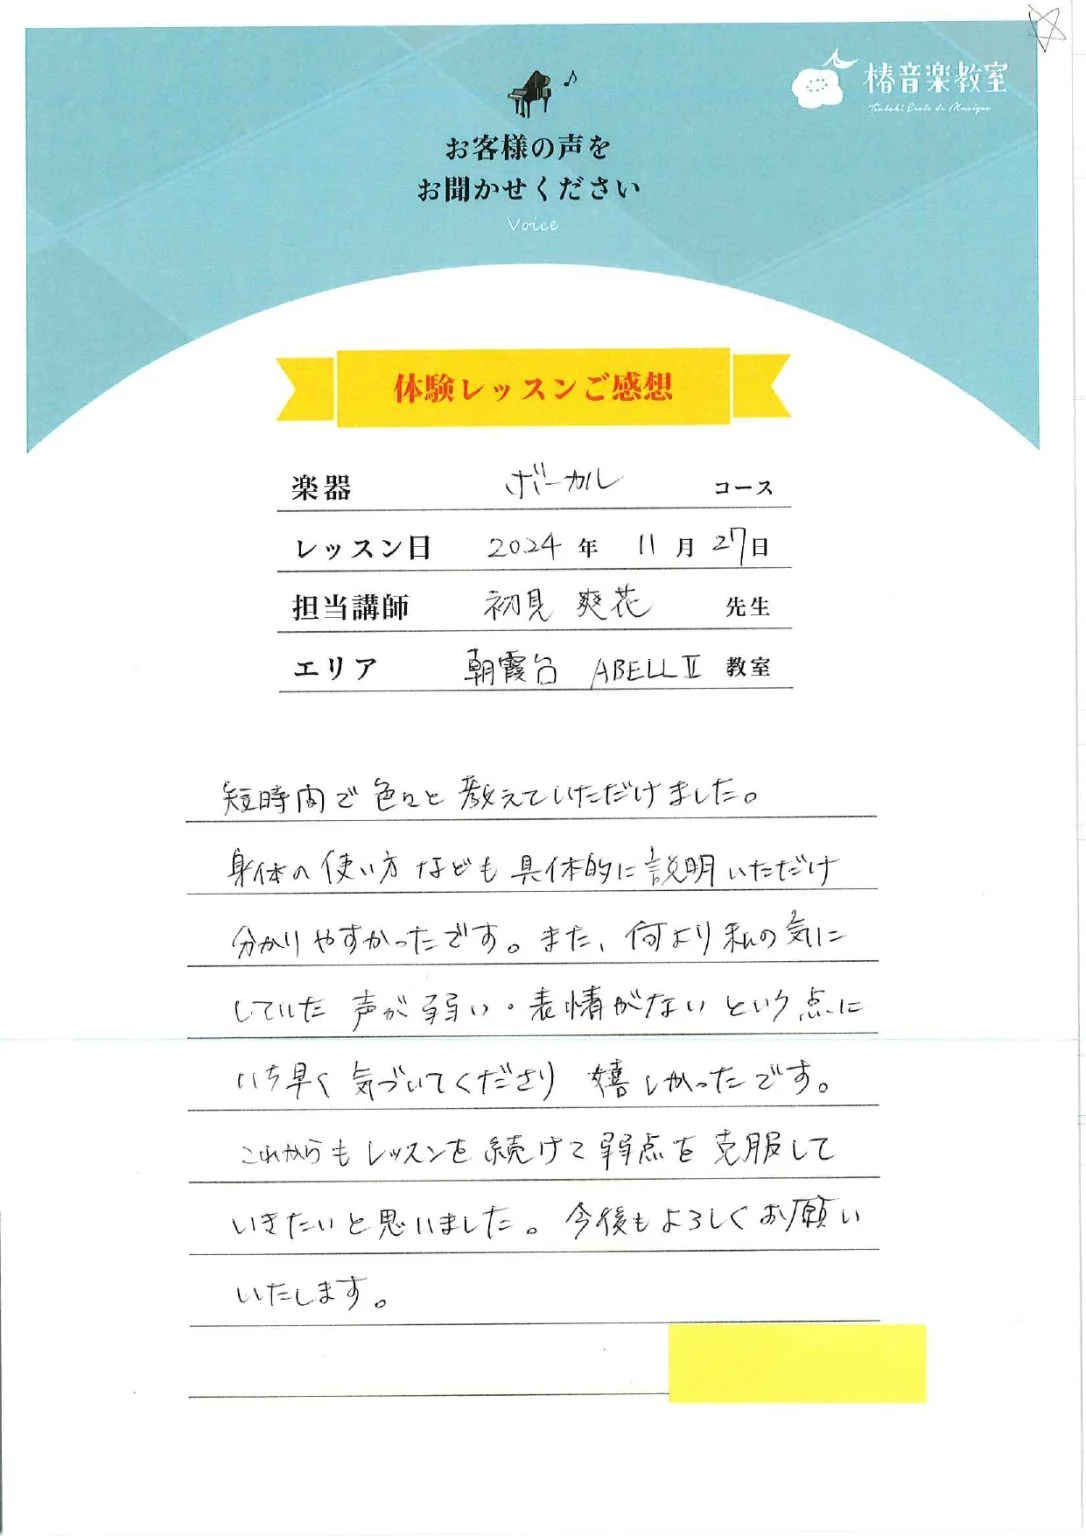 椿音楽教室
Tsubaki Ecole de Musique
お客様の声を
お聞かせください
Voice
体験レッスンご感想
楽器 ボーカル コース
レッスン日 2024 年 11 月 27日
担当講師 初見 爽花 先生
エリア 朝霞台 ABELLⅡ 教室
短時間で色々と教えていただけました。
身体の使い方なども具体的に説明いただけ
分かりやすかったです。また、何より私の気に
していた声が弱い・表情がないという点に
いち早く気づいてくださり嬉しかったです。
これからもレッスンを続けて弱点を克服して
いきたいと思いました。今後もよろしくお願い
いたします。